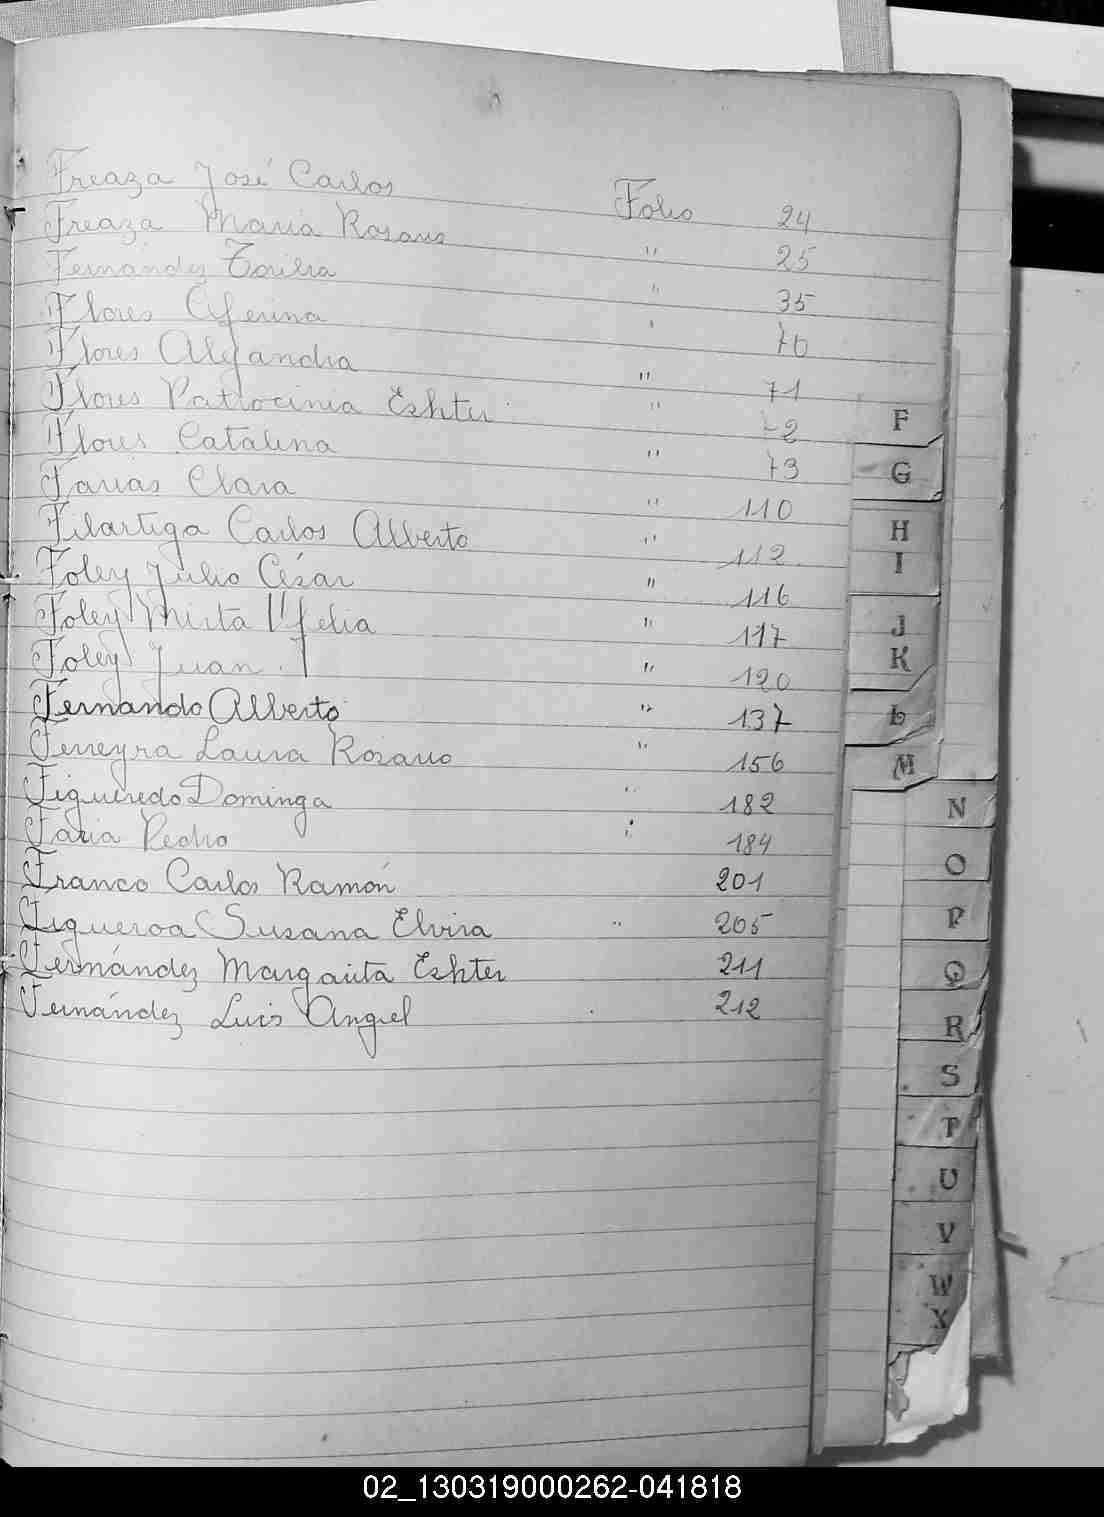 Freaza José Carlos Folio 24
Freaza Maria Rosana " 25
Fernández " 35
Flores Ceferina " 70
Flores Alejandra " 71
Flores Patrocinia Eshter " 72
Flores Catalina " 73
Farias Clara " 110
Filartiga Carlos Alberto " 112
Foley Julio César " 116
Foley Mirta " 117
Foley Juan " 120
Fernando Alberto " 137
Ferreyra Laura Rosario " 156
Figueredo Dominga " 182
Faria Pedro " 184
Franco Carlos Ramón 201
Figueroa Susana Elvira " 205
Fernández Margarita Eshter 211
Fernández Luis Angel 212
F
G
H
I
J
K
L
M
N
O
P
Q
R
S
T
U
V
W
X
02_130319000262-041818